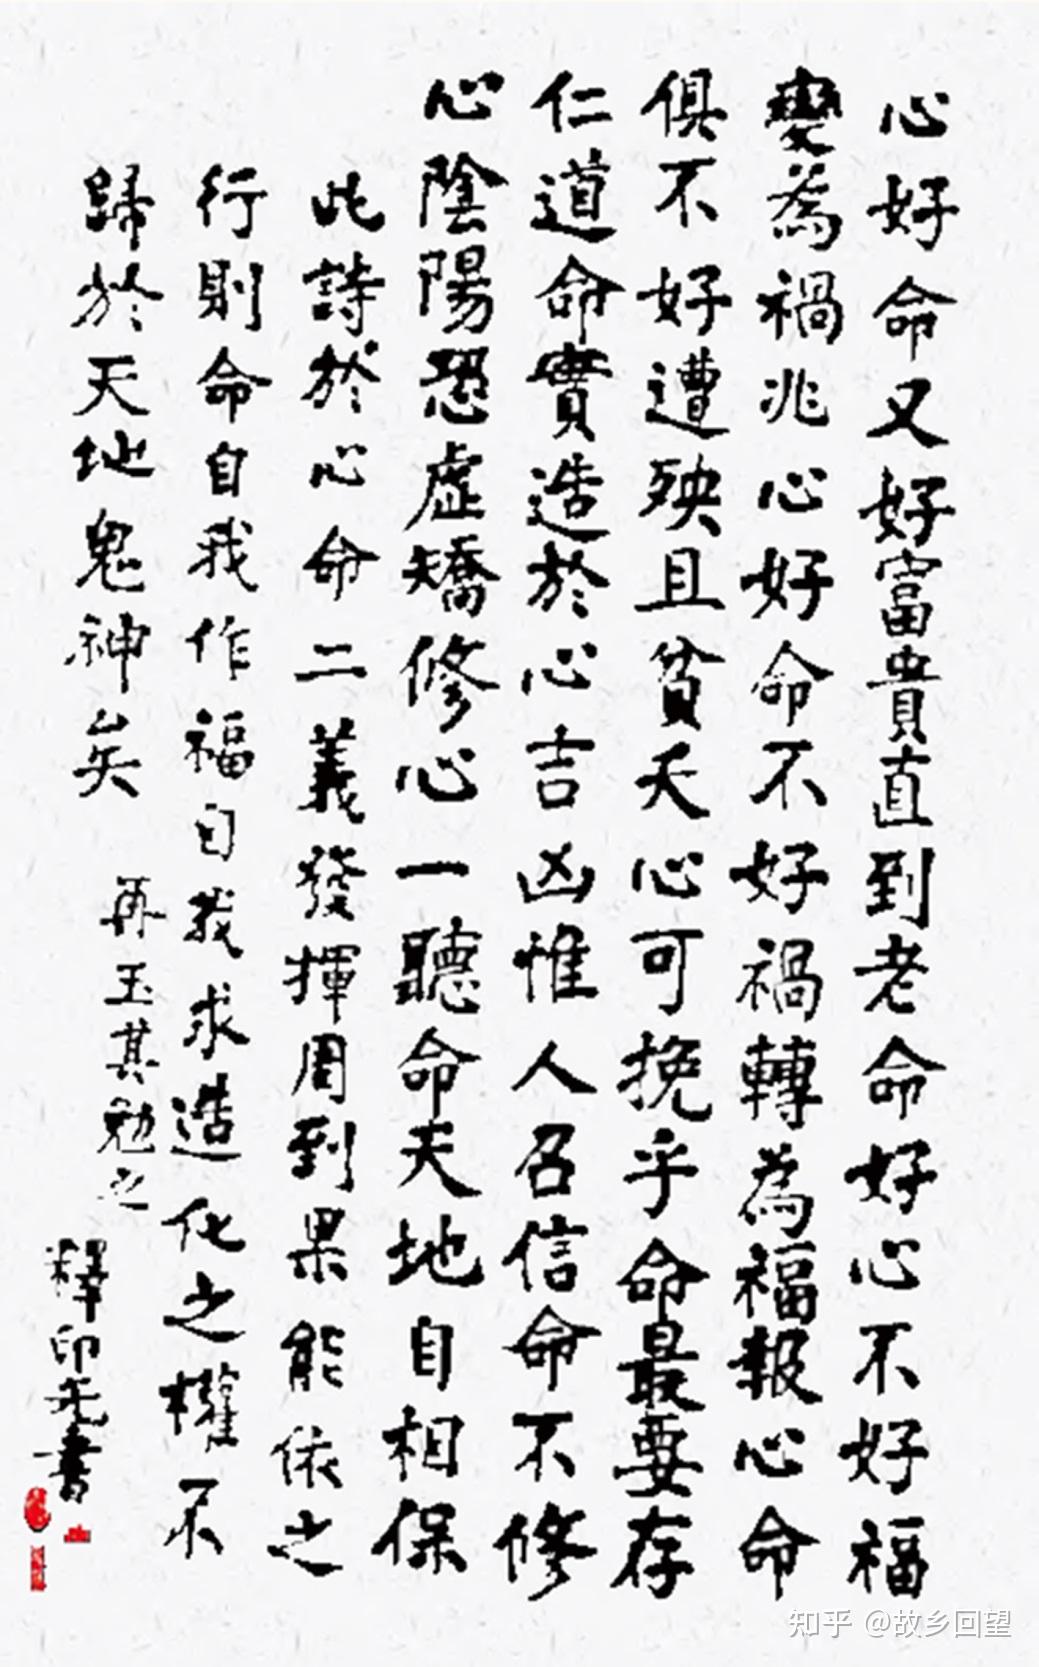 心好命又好富貴直到老命好心不好福
變為禍兆心好命不好禍轉為福報心命
俱不好遭殃且貧夭心可挽乎命最要存
仁道命實造於心吉凶惟人召信命不修
心陰陽恐虛矯修心一聽命天地自相保
此詩於心命二義發揮周到果能依之
行則命自我作福自我求造化之權不
歸於天地鬼神矣
再玉其勉之
釋印光書
知乎 @故乡回望